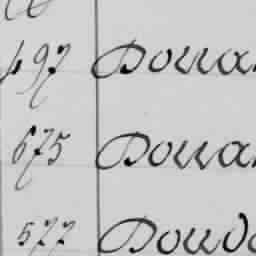 497 Doua
675 Doua
577 Doud